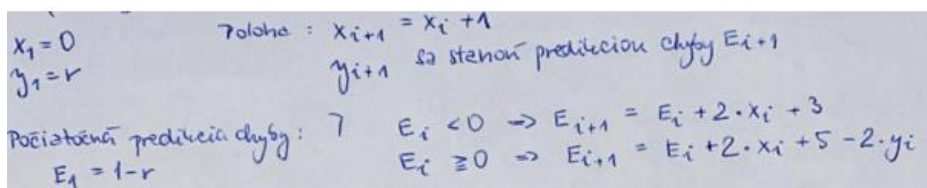 x₁ = 0
y₁ = r
Poloha : xᵢ₊₁ = xᵢ + 1
yᵢ₊₁ sa stanoví predikciou chyby Eᵢ₊₁
Počiatočná predikcia chyby :
E₁ = 1 - r
Eᵢ < 0 => Eᵢ₊₁ = Eᵢ + 2·xᵢ + 3
Eᵢ ≧ 0 => Eᵢ₊₁ = Eᵢ + 2·xᵢ + 5 - 2·yᵢ